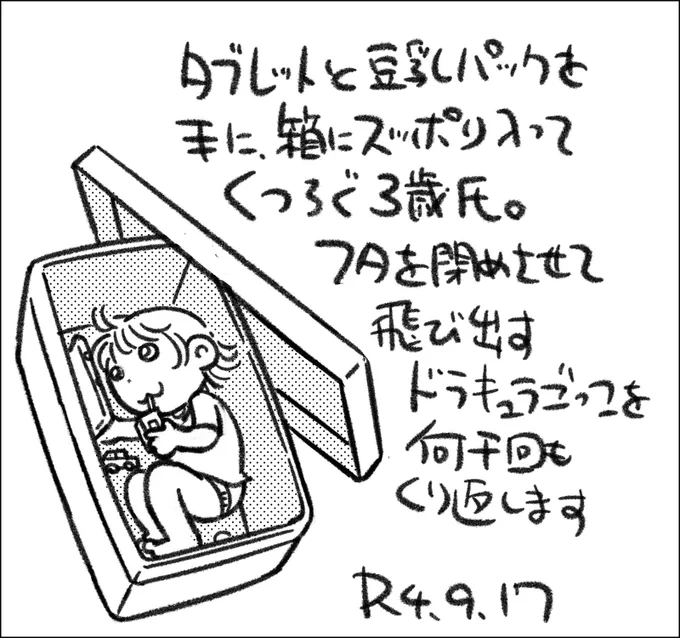 タブレットと豆乳パックを
手に、箱にスッポリ入って
くつろぐ3歳氏。
フタを閉めさせて
飛び出す
ドラキュラごっこを
何千回も
くり返します
R4.9.17